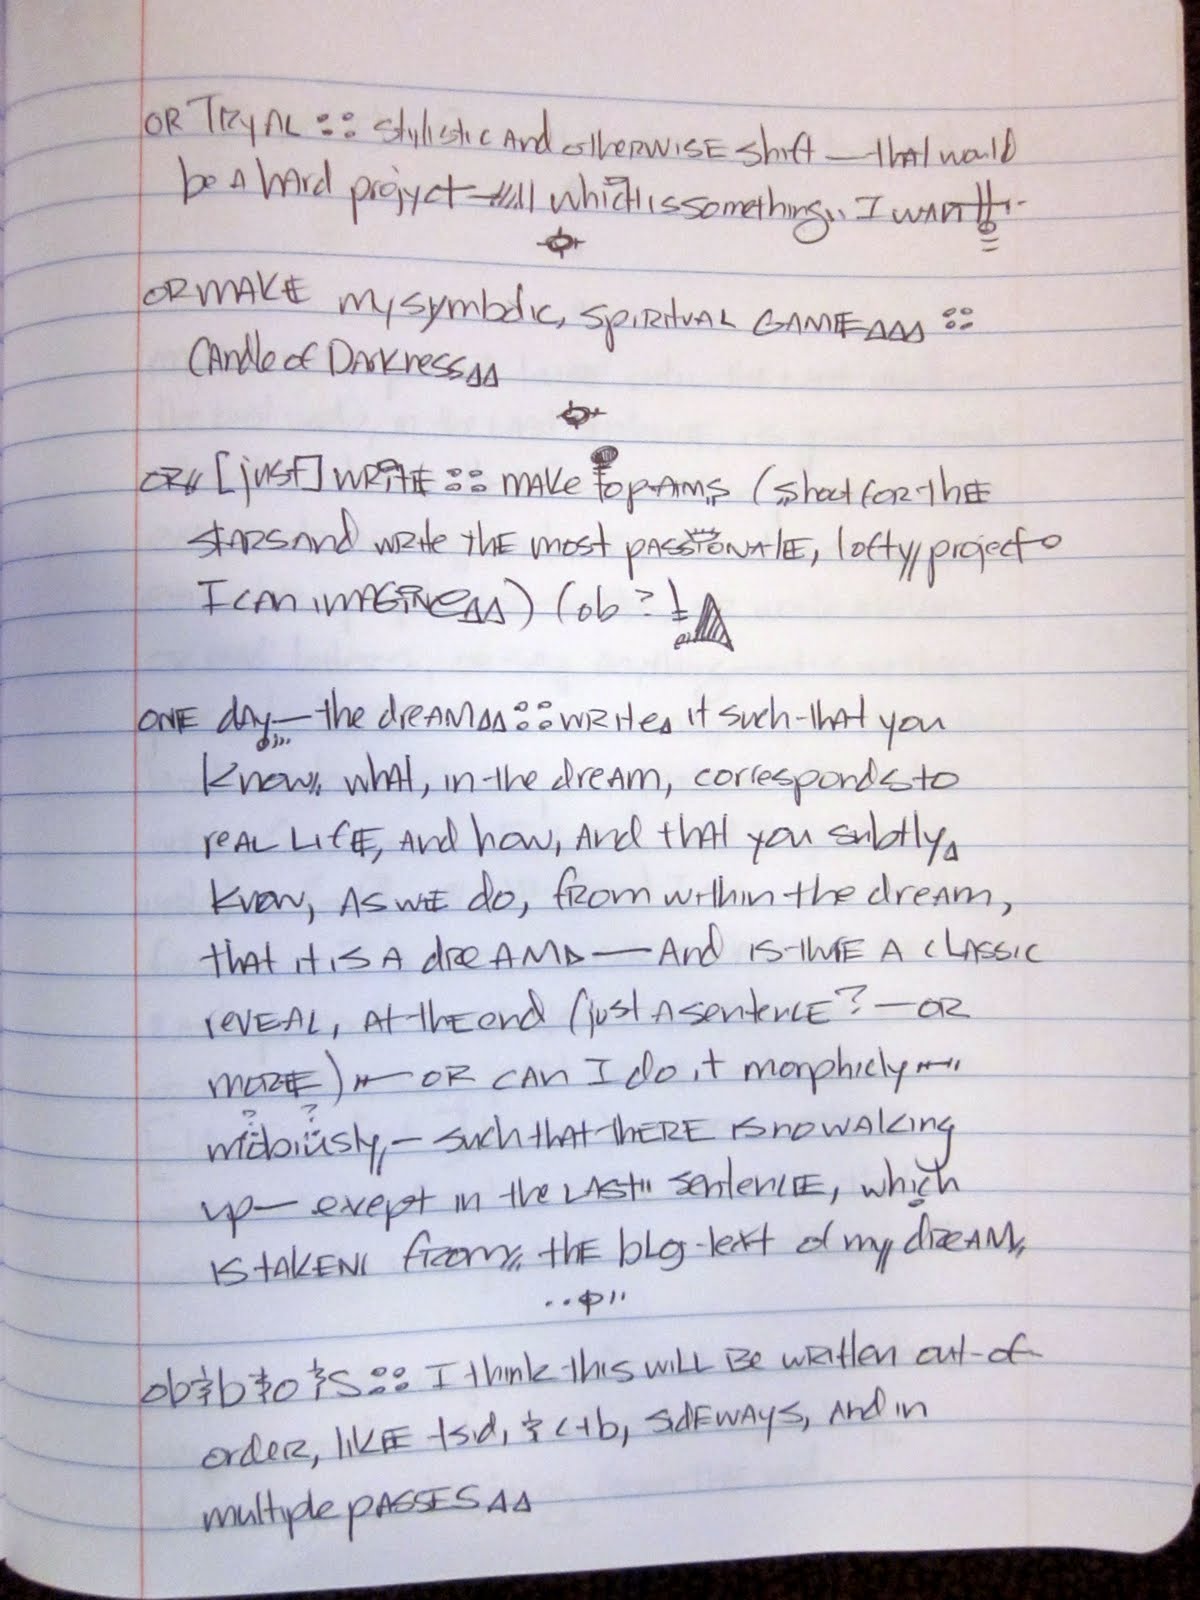 OR TRyAL :: stylistic And otherwise shift — that would
be A hard projyct — which is something,, I WANT
OR MAKE my symbolic, spiritual GAME ::
Candle of Darkness
OR,, [just] WRITE :: MAKE top AMS (shoot for the
stars and write the most passionate, lofty,, project
I can imagine) (ob ?
ONE day — the dream :: write it such that you
know,, what, in the dream, corresponds to
real life, and how, and that you subtly
know, as we do, from within the dream,
that it is a dream — And is there a classic
reveal, at the end (just a sentence? — OR
MORE) — OR CAN I do it morphicly
möbiüsly, — such that there is no waking
up — exept in the last,, sentence, which
is taken from,, the blog-text of my dream,,
ob&b&o&s :: I think this will be written out-of-
order, like tsid, & ctb, sideways, and in
multiple passes